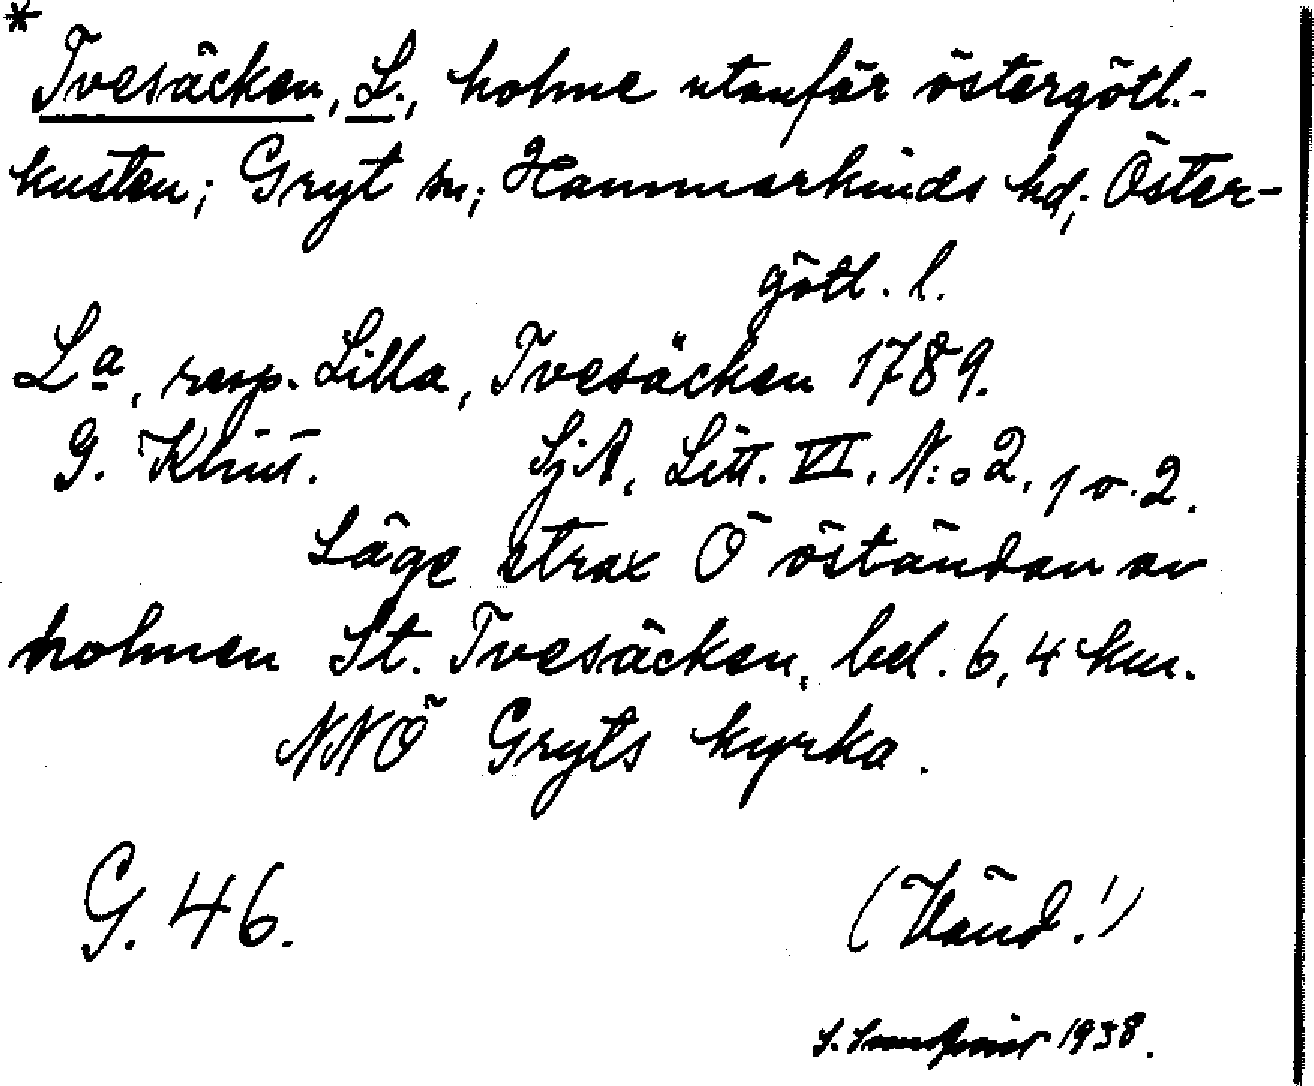 *
Tvesäcken, L., holme utanför östergötl.-
kusten; Gryt sn; Hammarkinds hd; Öster-
götl. l.
La, resp. Lilla, Tvesäcken 1789.
G. Klint. SjA, Litt. VI. N:o 2, 1 o. 2.
Läge strax Ö öständan av
holmen St. Tvesäcken, bel. 6,4 km.
NNÖ Gryts kyrka.
G. 46. (Vänd!)
1938.